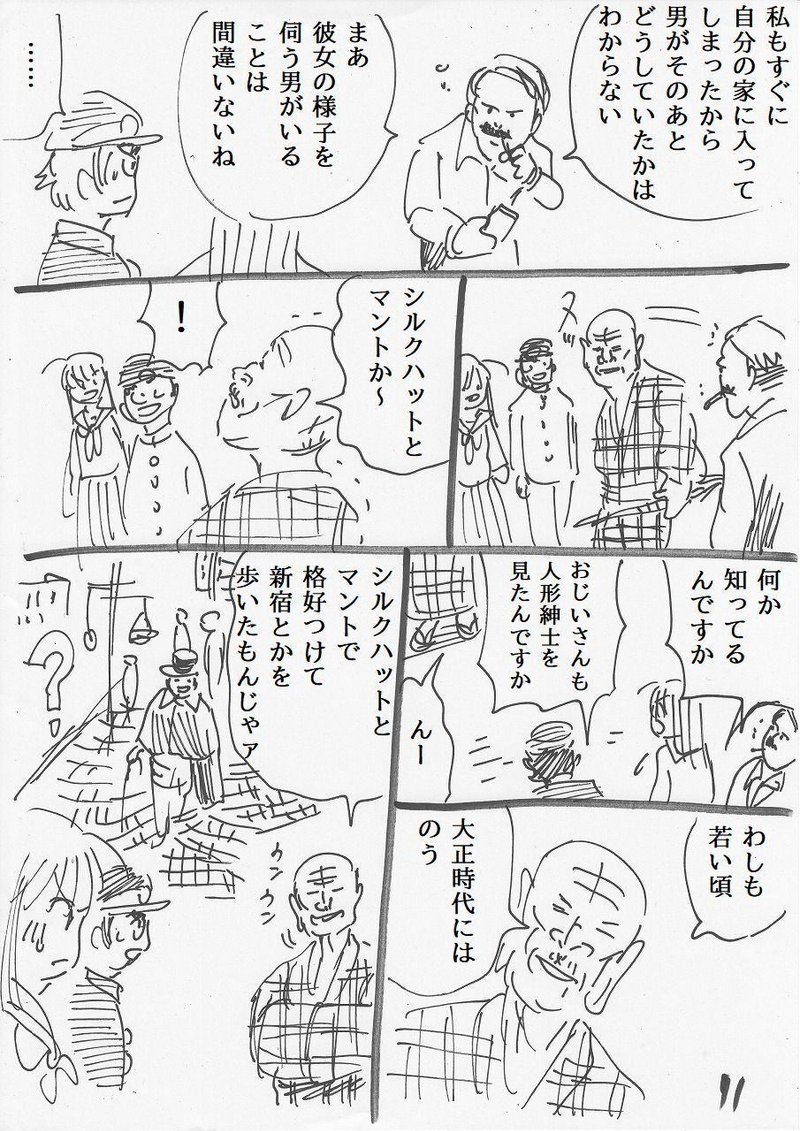 私もすぐに
自分の家に入って
しまったから
男がそのあと
どうしていたかは
わからない
まあ
彼女の様子を
伺う男がいる
ことは
間違いないね
……
ヌッ
シルクハットと
マントか～
！
何か
知ってる
んですか
おじいさんも
人形紳士を
見たんですか
んー
わしも
若い頃
大正時代には
のう
シルクハットと
マントで
格好つけて
新宿とかを
歩いたもんじゃァ
？
ウンウン
11